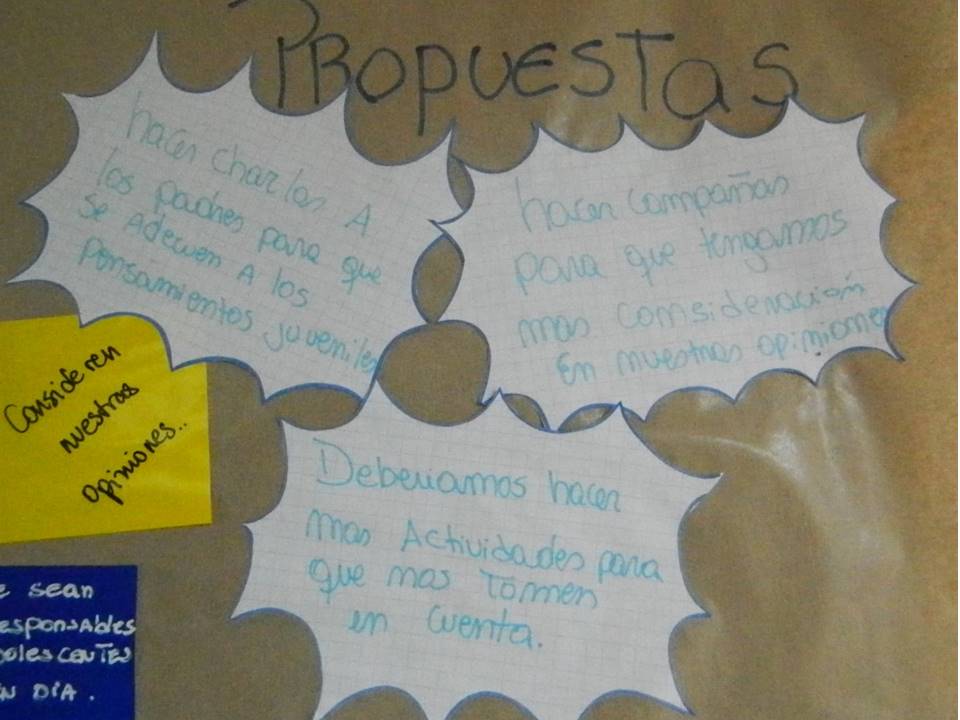 PROPUESTAS
hacer charlas A
los padres para que
se Adecuen A los
pensamientos juveniles
hacer campañas
para que tengamos
mas consideración
En nuestras opiniones
Consideren
nuestras
opiniones..
Deberiamos hacer
mas Actividades para
que mos Tomen
en cuenta.
e sean
esponsAbles
olesceNTes
N DíA.